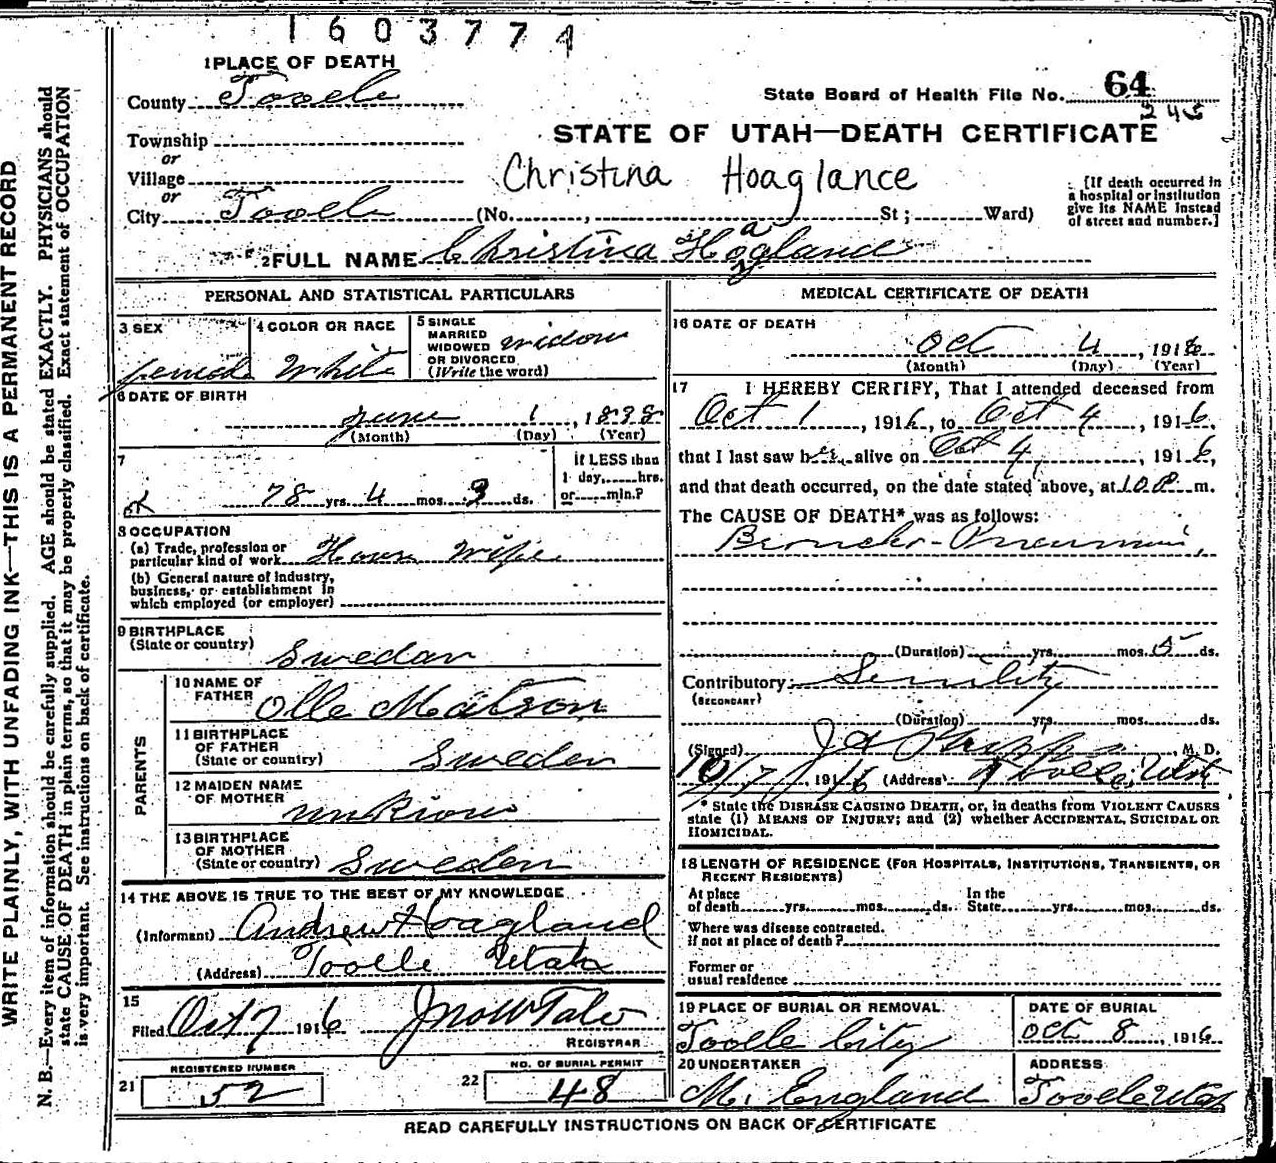 1603774
1 PLACE OF DEATH
County Tooele
State Board of Health File No. 64
245
Township
or
Village
or
City Tooele (No. , St ; Ward)
STATE OF UTAH—DEATH CERTIFICATE
Christina Hoaglance
[If death occurred in
a hospital or institution
give its NAME instead
of street and number.]
2 FULL NAME Christina Hoagland
PERSONAL AND STATISTICAL PARTICULARS
3 SEX
female
4 COLOR OR RACE
White
5 SINGLE
MARRIED
WIDOWED
OR DIVORCED
(Write the word)
widow
6 DATE OF BIRTH
June 1, 1838
(Month) (Day) (Year)
7
78 yrs. 4 mos. 3 ds.
If LESS than
1 day, hrs.
or min.?
8 OCCUPATION
(a) Trade, profession or
particular kind of work House wife
(b) General nature of industry,
business, or establishment in
which employed (or employer)
9 BIRTHPLACE
(State or country)
Sweden
PARENTS
10 NAME OF
FATHER
Olle Matson
11 BIRTHPLACE
OF FATHER
(State or country)
Sweden
12 MAIDEN NAME
OF MOTHER
unknown
13 BIRTHPLACE
OF MOTHER
(State or country)
Sweden
14 THE ABOVE IS TRUE TO THE BEST OF MY KNOWLEDGE
(Informant) Andrew Hoagland
(Address) Tooele Utah
15
Filed Oct 7 1916
REGISTRAR
REGISTERED NUMBER
21 52
NO. OF BURIAL PERMIT
22 48
MEDICAL CERTIFICATE OF DEATH
16 DATE OF DEATH
Oct 4, 1916
(Month) (Day) (Year)
17 I HEREBY CERTIFY, That I attended deceased from
Oct 1, 1916, to Oct 4, 1916,
that I last saw her alive on Oct 4, 1916,
and that death occurred, on the date stated above, at 10 P m.
The CAUSE OF DEATH* was as follows:
Broncho-Pneumonia,
(Duration) yrs. mos. 5 ds.
Contributory Senility
(SECONDARY)
(Duration) yrs. mos. ds.
(Signed) , M. D.
10/7 1916 (Address) Tooele, Utah
* State the DISEASE CAUSING DEATH, or, in deaths from VIOLENT CAUSES
state (1) MEANS OF INJURY; and (2) whether ACCIDENTAL, SUICIDAL OR
HOMICIDAL.
18 LENGTH OF RESIDENCE (FOR HOSPITALS, INSTITUTIONS, TRANSIENTS, OR
RECENT RESIDENTS)
At place In the
of death yrs. mos. ds. State yrs. mos. ds.
Where was disease contracted.
if not at place of death?
Former or
usual residence
19 PLACE OF BURIAL OR REMOVAL
Tooele City
DATE OF BURIAL
Oct 8, 1916
20 UNDERTAKER
M. England
ADDRESS
Tooele Utah
READ CAREFULLY INSTRUCTIONS ON BACK OF CERTIFICATE
WRITE PLAINLY, WITH UNFADING INK—THIS IS A PERMANENT RECORD
N. B.—Every item of information should be carefully supplied. AGE should be stated EXACTLY. PHYSICIANS should
state CAUSE OF DEATH in plain terms, so that it may be properly classified. Exact statement of OCCUPATION
is very important. See instructions on back of certificate.